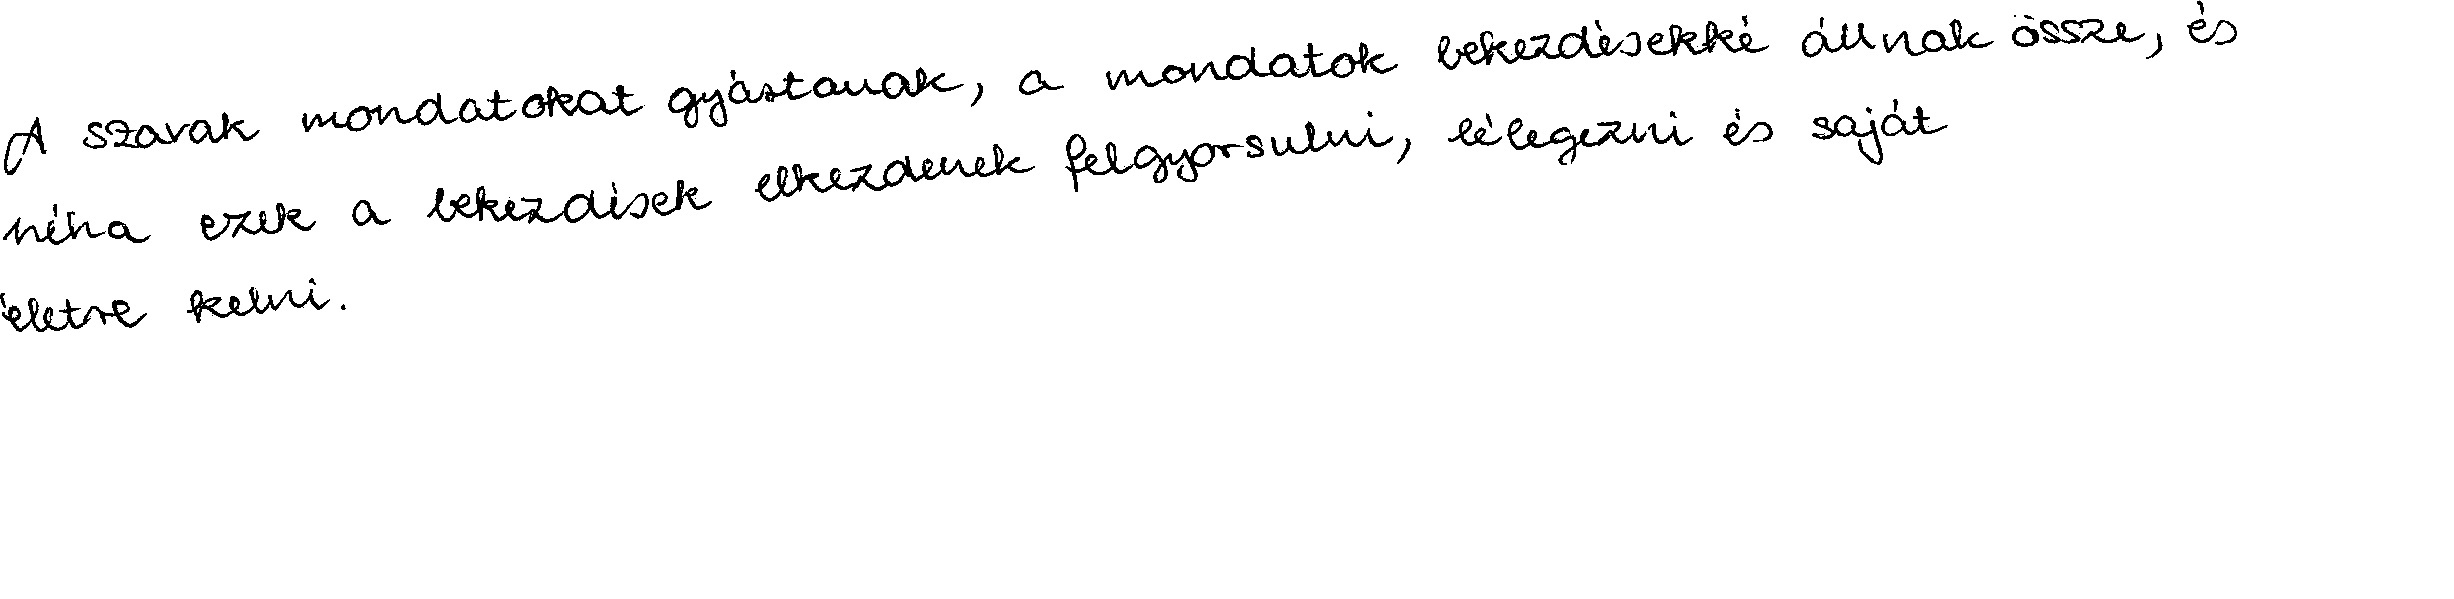 A szavak mondatokat gyártanak, a mondatok bekezdésekké állnak össze, és
néha ezek a bekezdések elkezdenek felgyorsulni, lélegezni és saját
életre kelni.